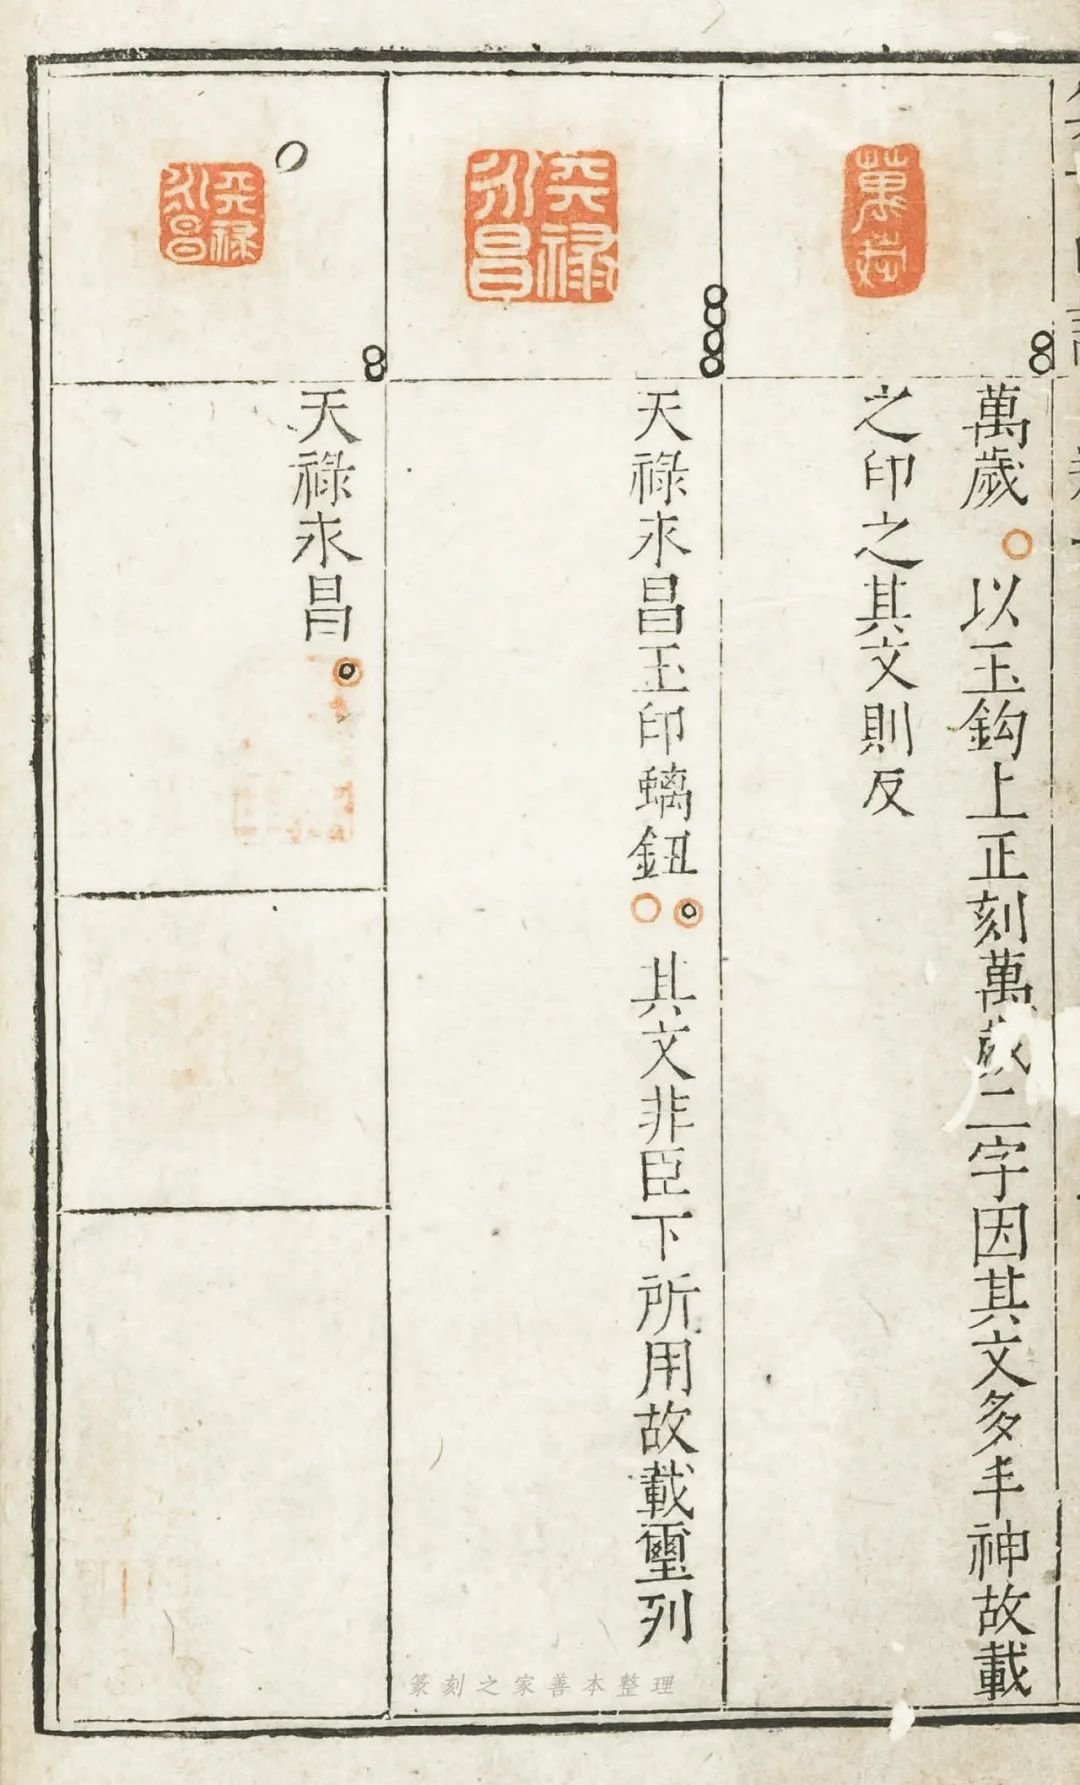 萬歲
以玉鈎上正刻萬歲二字因其文多手神故載
之印之其文則反
天禄永昌玉印螭鈕
其文非臣下所用故載璽列
天禄永昌
篆刻之家善本整理